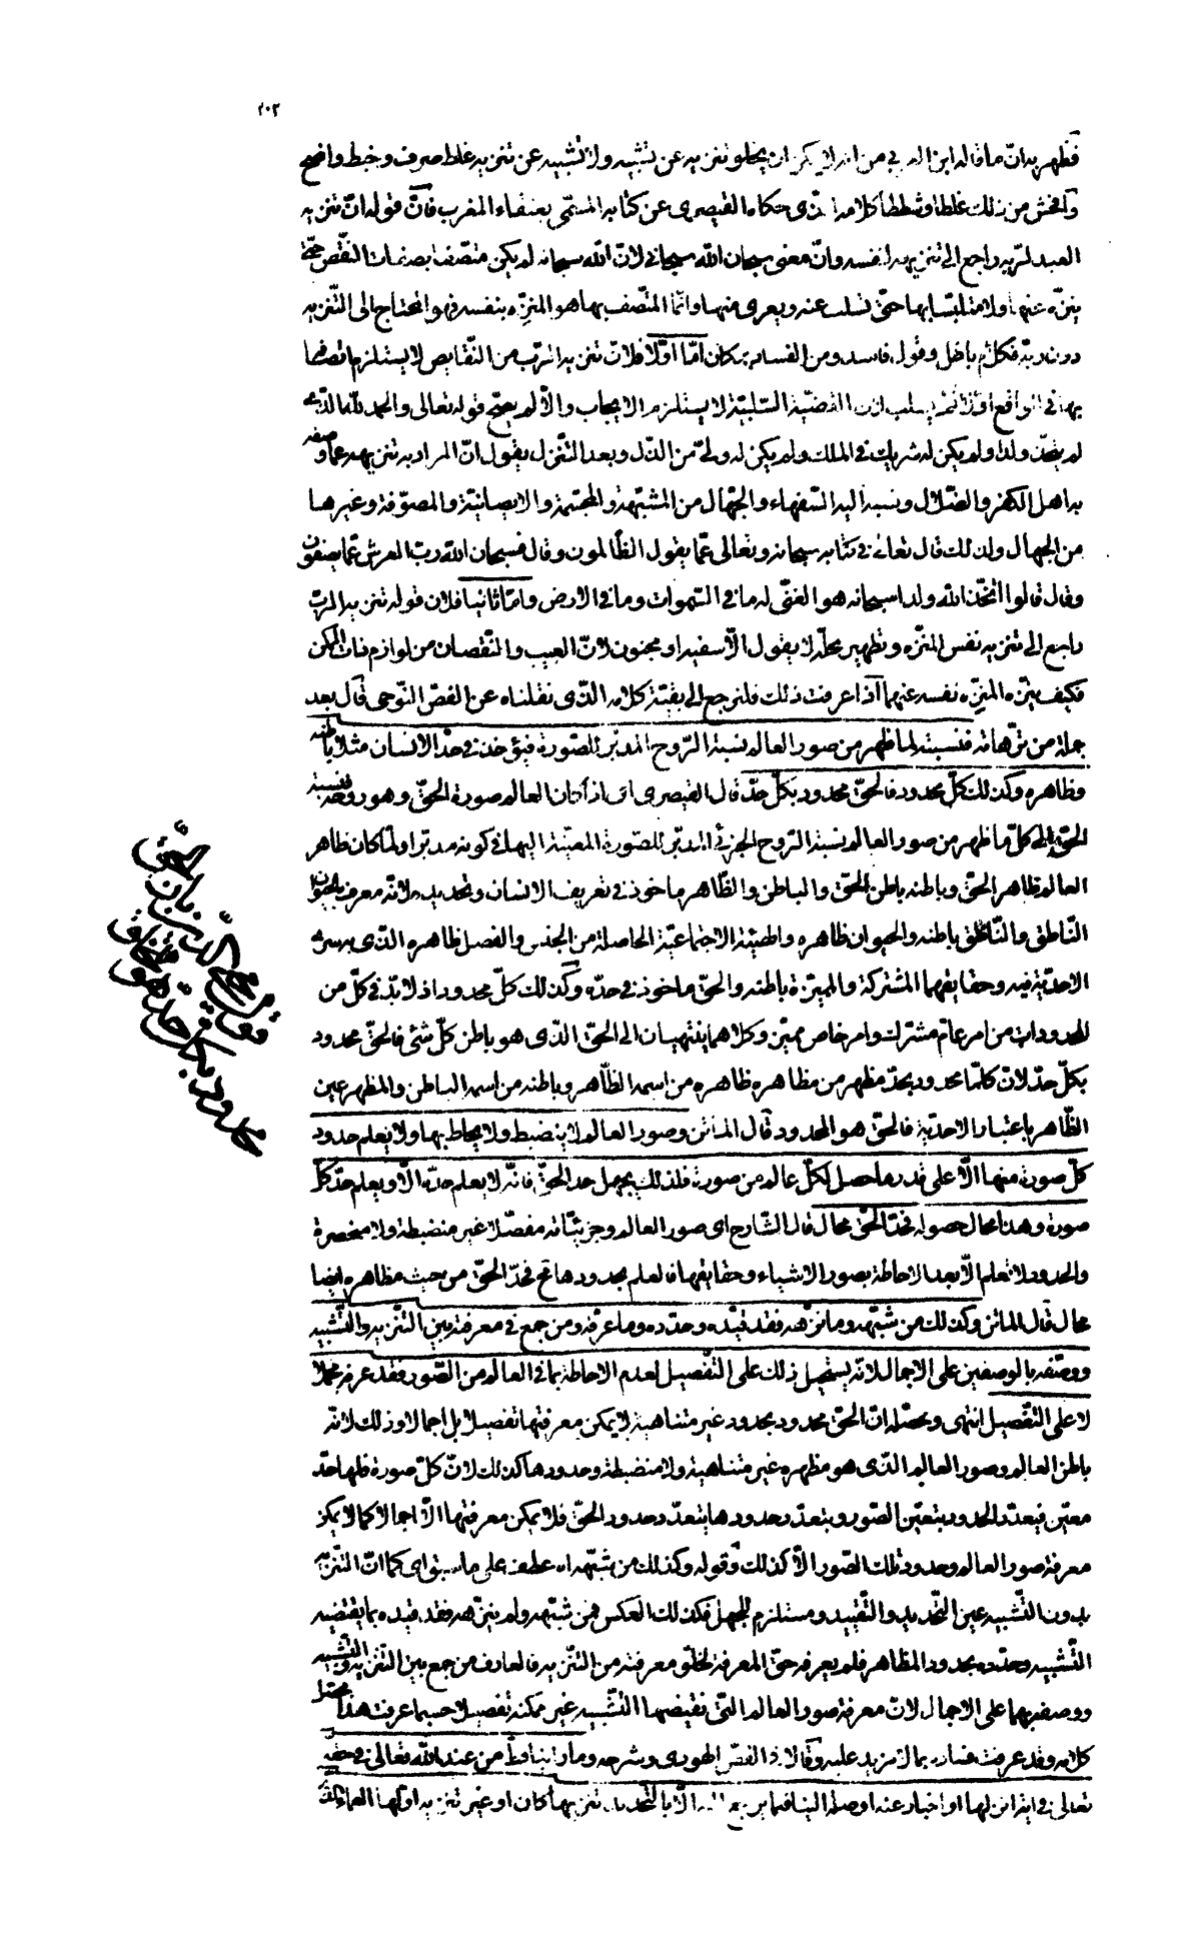 ٢٠٢
فظهر به انّ ما قاله ابن العربي من انه لا يمكن ان يخلو تنزيه عن تشبيه ولا تشبيه عن تنزيه غلط صرف وخبط واضح
وافحش من ذلك غلطا وشططا كلامه الّذي حكاه القيصرى عن كتابه المسمّى بعنقاء المغرب فانّ قوله انّ تنزيه
العبد لربّه راجع الى تنزيهه لنفسه وانّ معنى سبحان اللّه سبحاني لانّ اللّه سبحانه لم يكن متّصفا بصفات النّقص حتّى
ينزّه عنها ولا متلبّسا بها حتّى تسلب عنه ويعرى منها وانّما المتّصف بها هو المنزّه بنفسه فهو المحتاج الى التّنزيه
دون ربّه فكلام باطل وقول فاسد ومن الفساد بمكان امّا اوّلا فلانّ تنزيه الرّب من النّقايص لا يستلزم اتّصافها
بها في الواقع اوّلا ثمّ يسلب لانّ القضيّة السّلبيّة لا يستلزم الايجاب والّا لم يصحّ قوله تعالى والحمد للّه الّذي
لم يتّخذ ولدا ولم يكن له شريك في الملك ولم يكن له وليّ من الذّل وبعد التّنزّل يقول انّ المراد به تنزيهه عمّا وصفه
به اهل الكفر والضّلال ونسبه اليه السّفهاء والجهّال من المشبّهة والمجسّمة والمصوّفة وغيرها
من الجهال ولذلك قال تعالى في كتابه سبحانه وتعالى عمّا يقول الظّالمون وقال فسبحان اللّه ربّ العرش عمّا يصفون
وقال قالوا اتّخذ اللّه ولدا سبحانه هو الغنىّ له ما في السّموات وما في الارض وامّا ثانيا فلان قوله تنزيه الرّب
راجع الى تنزيه نفس المنزّه وتطهير محلّه لا يقول الّا سفيه او مجنون لانّ العيب والنّقصان من لوازم ذات الممكن
فكيف ينزّه المنزّه نفسه عنهما اذا عرفت ذلك فلنرجع الى بقيّة كلامه الّذى نقلناه عن الفصّ النّوحى قال بعد
جملة من ترّهاته فنسبته لما ظهر من صور العالم نسبة الرّوح المدبّر للصّورة فيؤخذ في حدّ الانسان مثلا باطنه
وظاهره وكذلك كلّ محدود فالحقّ محدود بكلّ حدّ قال القيصرى اى اذا كان العالم صورة الحقّ وهو روحه فنسبة
الحقّ الى كلّ ما ظهر من صور العالم نسبة الرّوح الجزئي المدبّر للصّورة المعيّنة اليها في كونه مدبّرا ولمّا كان ظاهر
العالم ظاهر الحقّ وباطنه باطن الحقّ والباطن والظّاهر ماخوذ في تعريف الانسان وتحديده لانّه معرف بالحيوان
النّاطق والنّاطق باطنه والحيوان ظاهره والهيئة الاجتماعيّة الحاصلة من الجنس والفصل ظاهره الّذى به سرّ
الاحديّة فيه وحقايقهما المشتركة والمميّزة باطنه والحقّ ماخوذ في حدّه وكذلك كلّ محدود اذ لا بدّ في كلّ من
المحدودات من امر عامّ مشترك وامر خاص مميّز وكلاهما ينتهيان الى الحقّ الّذى هو باطن كلّ شئ فالحقّ محدود
بكلّ حدّ لانّ كلّما محدود بحدّ مظهر من مظاهره ظاهره من اسمه الظّاهر وباطنه من اسمه الباطن والمظهر عين
الظّاهر باعتبار الاحديّة فالحقّ هو المحدود قال الماتن وصور العالم لا ينضبط ولا يحاط بها ولا يعلم حدود
كلّ صورة منها الّا على قدر ما حصل لكلّ عالم من صورة فلذلك يجهل حد الحقّ فانّه لا يعلم حدّه الّا ويعلم حدّ كلّ
صورة وهذا محال حصوله فحدّ الحقّ محال قال الشّارح اى صور العالم وجزئيّاته مفصّلا غير منضبطة ولا منحصرة
والحدود لا تعلم الّا بعد الاحاطة بصور الاشياء وحقايقها فالعلم بحدودها مح فحدّ الحقّ من حيث مظاهره ايضا
محال قال الماتن وكذلك من شبّهه وما نزّهه فقد قيّده وحدّده وما عرفه ومن جمع في معرفته بين التّنزيه والتّشبيه
ووصفه بالوصفين على الاجمال لانّه يستحيل ذلك على التّفصيل لعدم الاحاطة بما في العالم من الصّور فقد عرفه مجملا
لا على التّفصيل انتهى ومحصّله انّ الحقّ محدود بحدود غير متناهية لا يمكن معرفتها تفصيلا بل اجمالا وذلك لانّه
باطن العالم وصور العالم الّذى هو مظهره غير متناهية ولا منضبطة وحدودها كذلك لانّ كلّ صورة فلها حدّ
معيّن فيعدّد الحدود بتعيّن الصّور وبتعدّد حدودها يتعدّد حدود الحقّ فلا يمكن معرفتها الّا اجمالا كما لا يمكن
معرفة صور العالم وحدود تلك الصّور الّا كذلك وقوله وكذلك من شبّهه اه عطف على ما سبق اى كما انّ التّنزيه
بدون التّشبيه عين التّحديد والتّقييد ومستلزم للجهل فكذلك العكس فمن شبّهه ولم ينزّهه فقد قيّده بما يقتضيه
التّشبيه وحدّده بحدود المظاهر فلم يعرفه حقّ المعرفة لخلوّ معرفته من التّنزيه فالعارف من جمع بين التّنزيه والتّشبيه
ووصفه بهما على الاجمال لانّ معرفة صور العالم الّتى تقتضيها التّشبيه غير ممكنة تفصيلا حسبما عرفت هذا محصّل
كلامه وقد عرفت فساده بما لا مزيد عليه وقالا في الفصّ الهودى وشرحه وما راينا قطّ من عند اللّه تعالى في حقّه
تعالى في اية انزلها او اخبار عنه اوصله الينا فيما يرجع اليه الّا بالتّحديد تنزيها كان او غير تنزيه اوّلها العماء الّذي
قول محيى الدّين بانّ الحقّ
محدود بكلّ حدّ